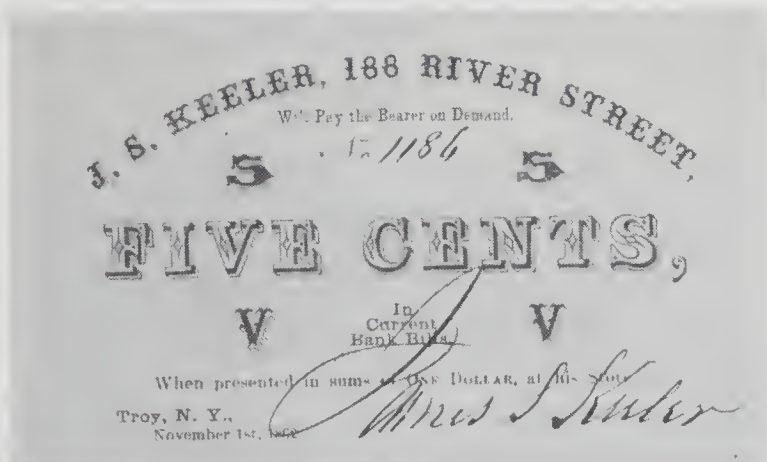 J. S. KEELER, 188 RIVER STREET,
Will Pay the Bearer on Demand.
No 1186
5 5
FIVE CENTS,
V V
In
Current
Bank Bills,
When presented in sums of ONE DOLLAR, at his Store
Troy, N. Y.,
November 1st, 1862
James S Keeler